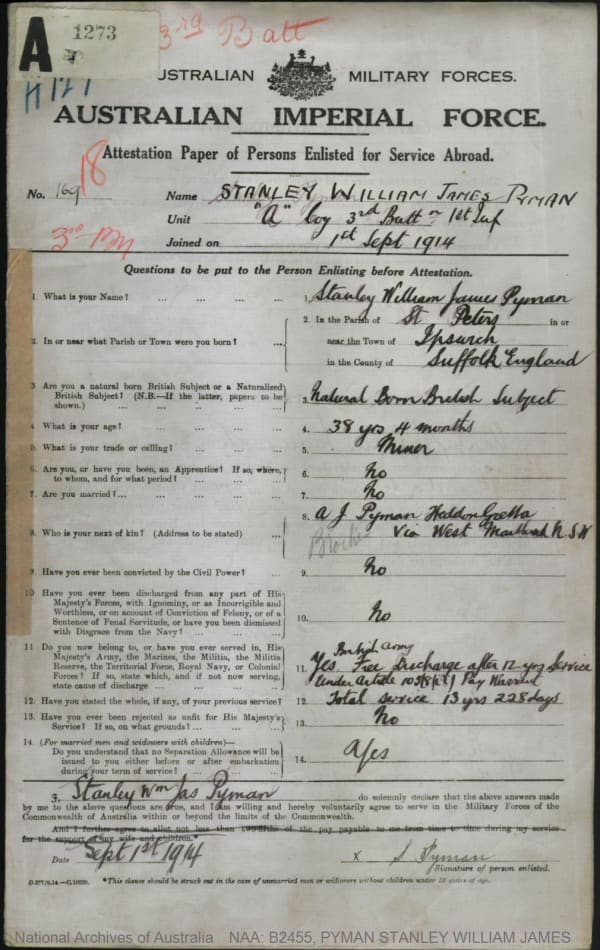 A 1273
3rd Batt
H127
AUSTRALIAN MILITARY FORCES.
AUSTRALIAN IMPERIAL FORCE.
Attestation Paper of Persons Enlisted for Service Abroad.
18
No. 169 Name STANLEY WILLIAM JAMES PYMAN
Unit "A" Coy 3rd Battn 1st Inf
Joined on 1st Sept 1914
Questions to be put to the Person Enlisting before Attestation.
1. What is your Name? ... ... ... ... 1. Stanley William James Pyman
2. In or near what Parish or Town were you born? ... ... 2. In the Parish of St Peters in or
near the Town of Ipswich
in the County of Suffolk England
3 Are you a natural born British Subject or a Naturalized
British Subject? (N.B.—If the latter, papers to be
shown.) ... ... ... ... 3. Natural Born British Subject
4. What is your age? ... ... ... ... 4. 38 yrs 4 months
5. What is your trade or calling? ... ... ... 5. Miner
6. Are you, or have you been, an Apprentice? If so, where,
to whom, and for what period? ... ... ... 6. No
7. Are you married?... ... ... ... 7. No
8. Who is your next of kin? (Address to be stated) ... 8. A J Pyman Heddon Greta
Brother Via West Maitland N.S.W
9. Have you ever been convicted by the Civil Power? ... 9. No
10 Have you ever been discharged from any part of His
Majesty's Forces, with Ignominy, or as Incorrigible and
Worthless, or on account of Conviction of Felony, or of a
Sentence of Penal Servitude, or have you been dismissed
with Disgrace from the Navy? ... ... ... 10. No
11 Do you now belong to, or have you ever served in, His
Majesty's Army, the Marines, the Militia, the Militia
Reserve, the Territorial Force, Royal Navy, or Colonial
Forces? If so, state which, and if not now serving,
state cause of discharge ... ... ...
British Army
11. Yes Free Discharge after 12 yrs Service
Under Article Pay Warrant
12. Have you stated the whole, if any, of your previous service? 12. Total service 13 yrs 228 days
13. Have you ever been rejected as unfit for His Majesty's
Service? If so, on what grounds? ... ... ... 13. No
14 (For married men and widowers with children)—
Do you understand that no Separation Allowance will be
issued to you either before or after embarkation
during your term of service? ... ... ... 14. Yes
I, Stanley Wm Jas Pyman do solemnly declare that the above answers made
by me to the above questions are true, and I am willing and hereby voluntarily agree to serve in the Military Forces of the
Commonwealth of Australia within or beyond the limits of the Commonwealth.
And I further agree to allot not less than two-fifths of the pay payable to me from time to time during my service
for the support of my wife and children.*
Date Sept 1st 1914 x S Pyman
Signature of person enlisted.
*This clause should be struck out in the case of unmarried men or widowers without children under 18 years of age.
National Archives of Australia NAA: B2455, PYMAN STANLEY WILLIAM JAMES